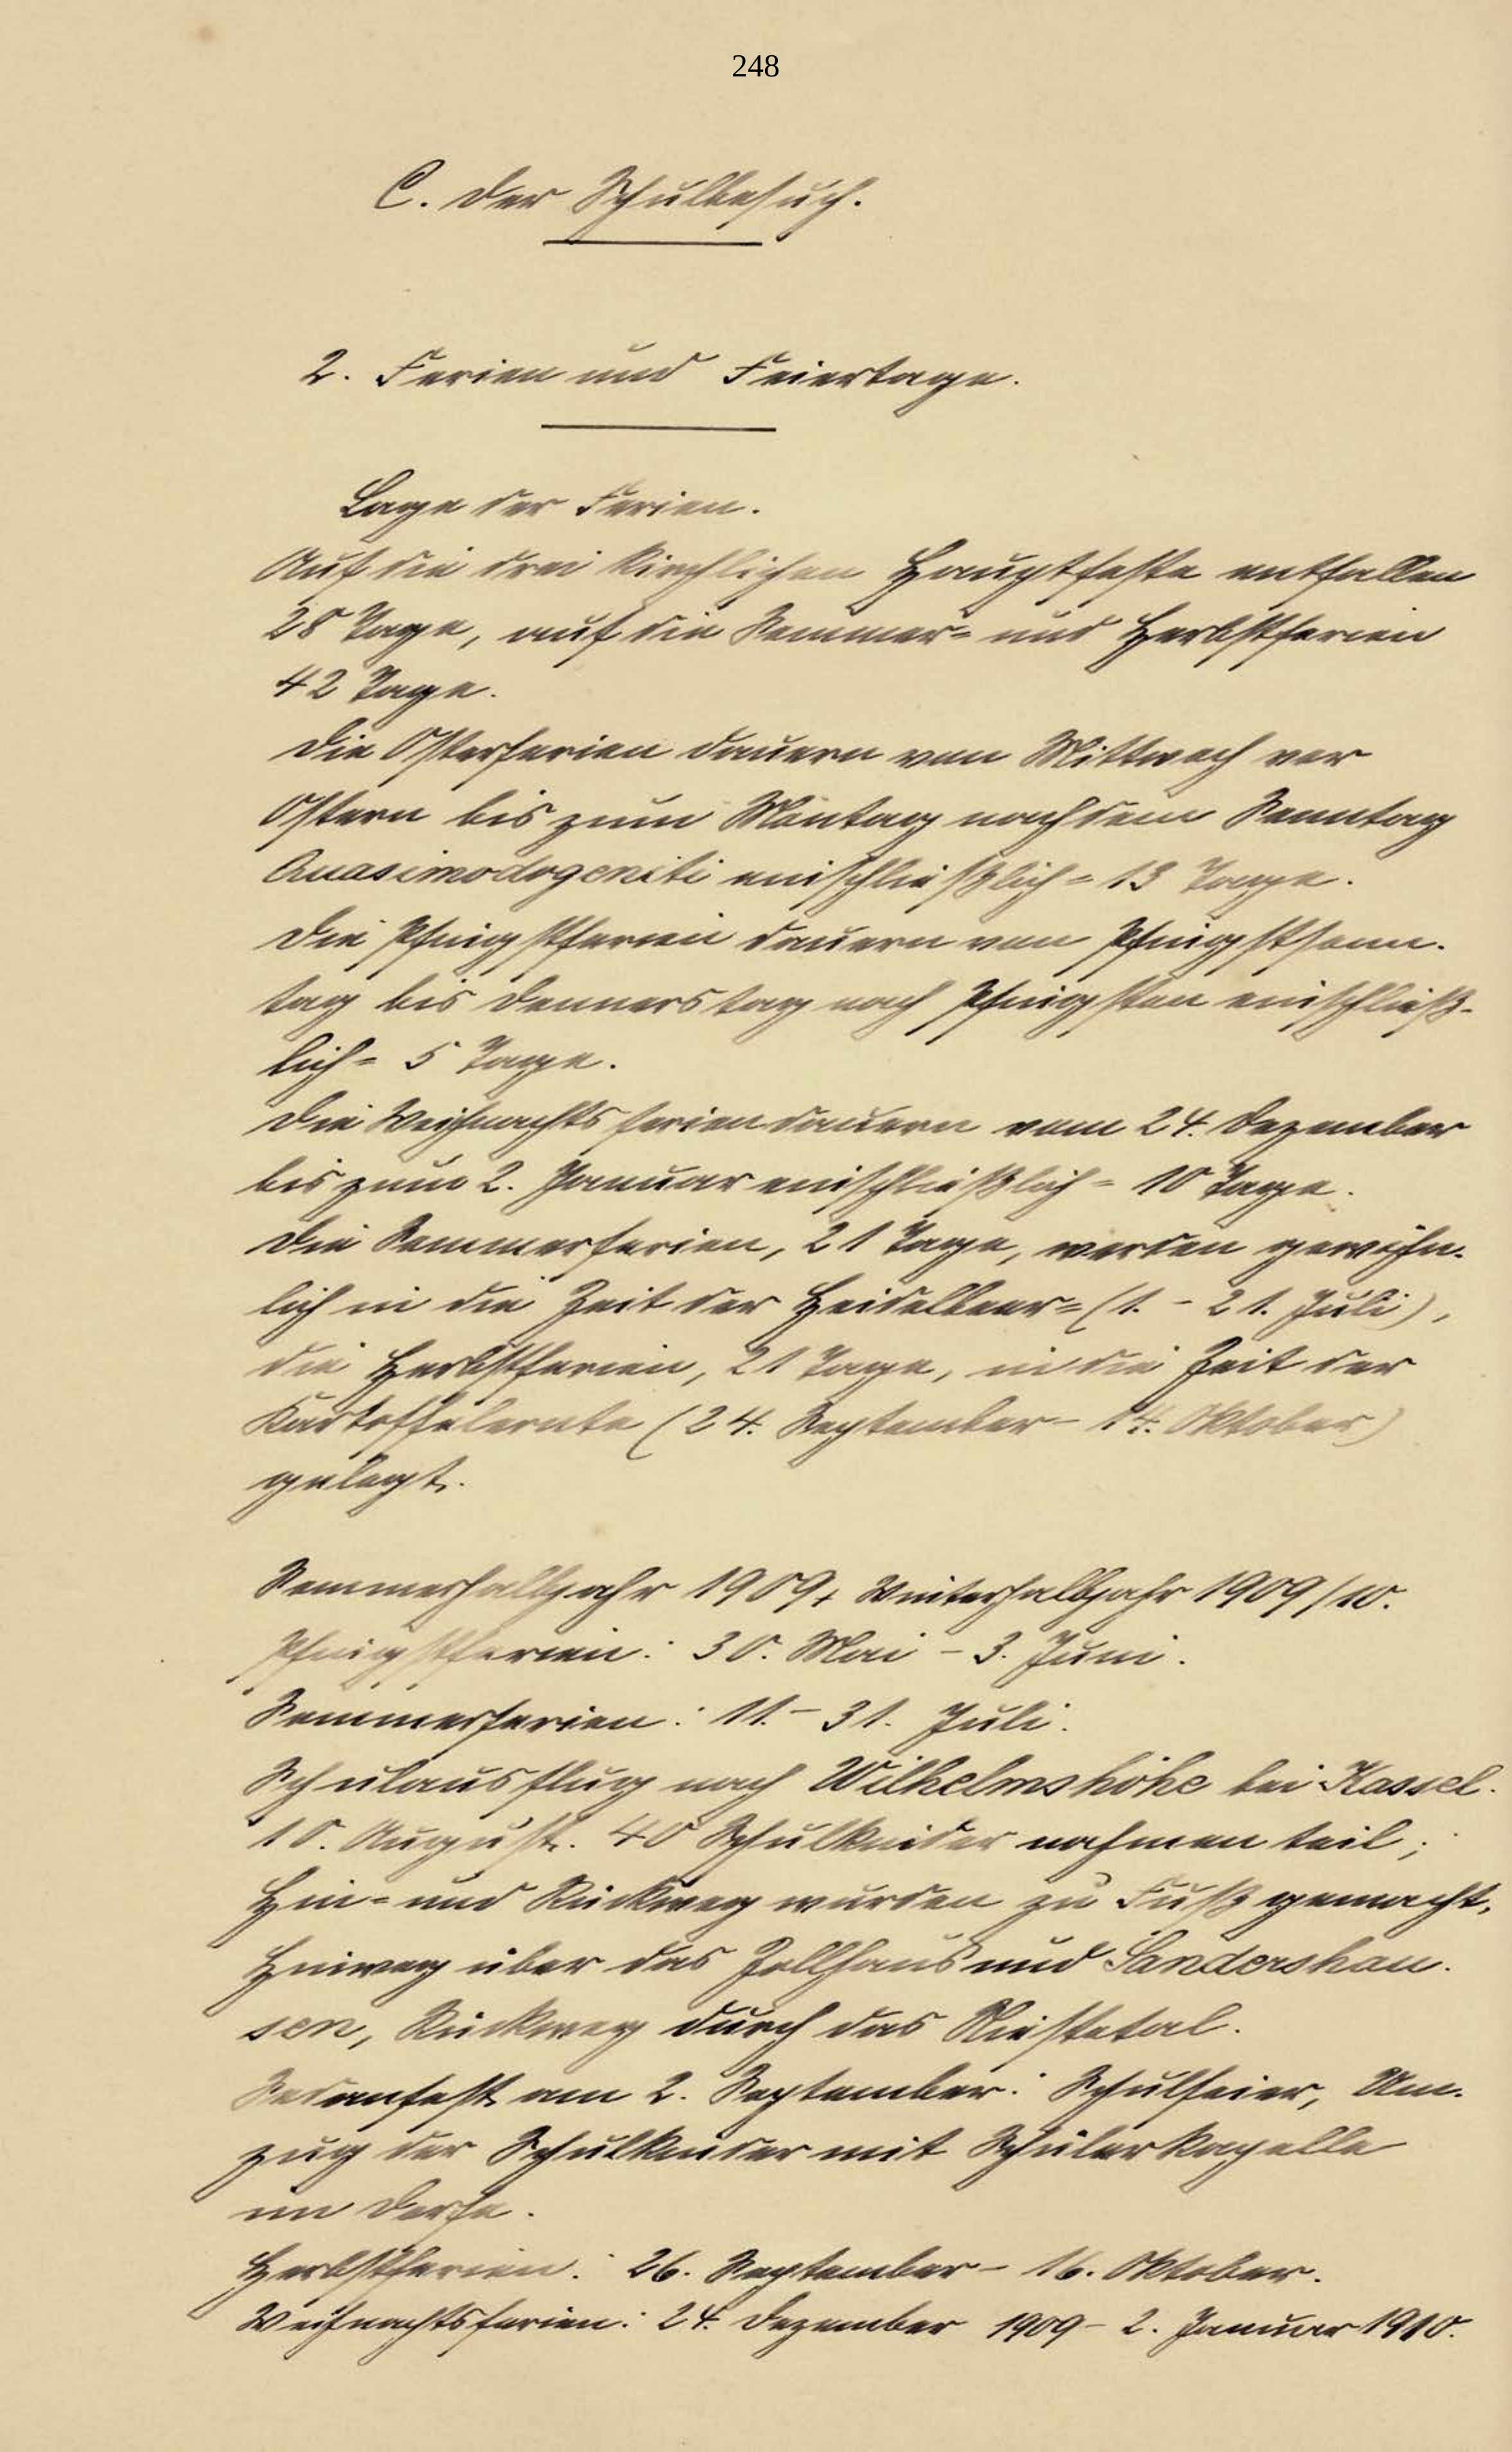 248
C. Der Schulbesuch.
2. Ferien und Feiertage.
Lage der Ferien.
Auf die drei kirchlichen Hauptfeste entfallen
28 Tage, auf die Sommer- und Herbstferien
42 Tage.
Die Osterferien dauern vom Mittwoch vor
Ostern bis zum Montag nach dem Sonntag
Quasimodogeniti einschließlich = 13 Tage.
Die Pfingstferien dauern von Pfingstsonn-
tag bis Donnerstag nach Pfingsten einschließ-
lich = 5 Tage.
Die Weihnachtsferien dauern vom 24. Dezember
bis zum 2. Januar einschließlich = 10 Tage.
Die Sommerferien, 21 Tage, werden gewöhn-
lich in die Zeit der Heidelbeer- (1. - 21. Juli),
die Herbstferien, 21 Tage, in die Zeit der
Kartoffelernte (24. September - 14. Oktober)
gelegt.
Sommerhalbjahr 1909 + Winterhalbjahr 1909/10.
Pfingstferien: 30. Mai - 3. Juni.
Sommerferien: 11. - 31. Juli.
Schulausflug nach Wilhelmshöhe bei Kassel.
10. August. 40 Schulkinder nahmen teil;
Hin- und Rückweg wurden zu Fuß gemacht,
Hinweg über das Zollhaus und Sandershau-
sen, Rückweg durch das Niestetal.
Sedanfest am 2. September: Schulfeier, Um-
zug der Schulkinder mit Schülerkapelle
im Dorfe.
Herbstferien: 26. September - 16. Oktober.
Weihnachtsferien: 24. Dezember 1909 - 2. Januar 1910.